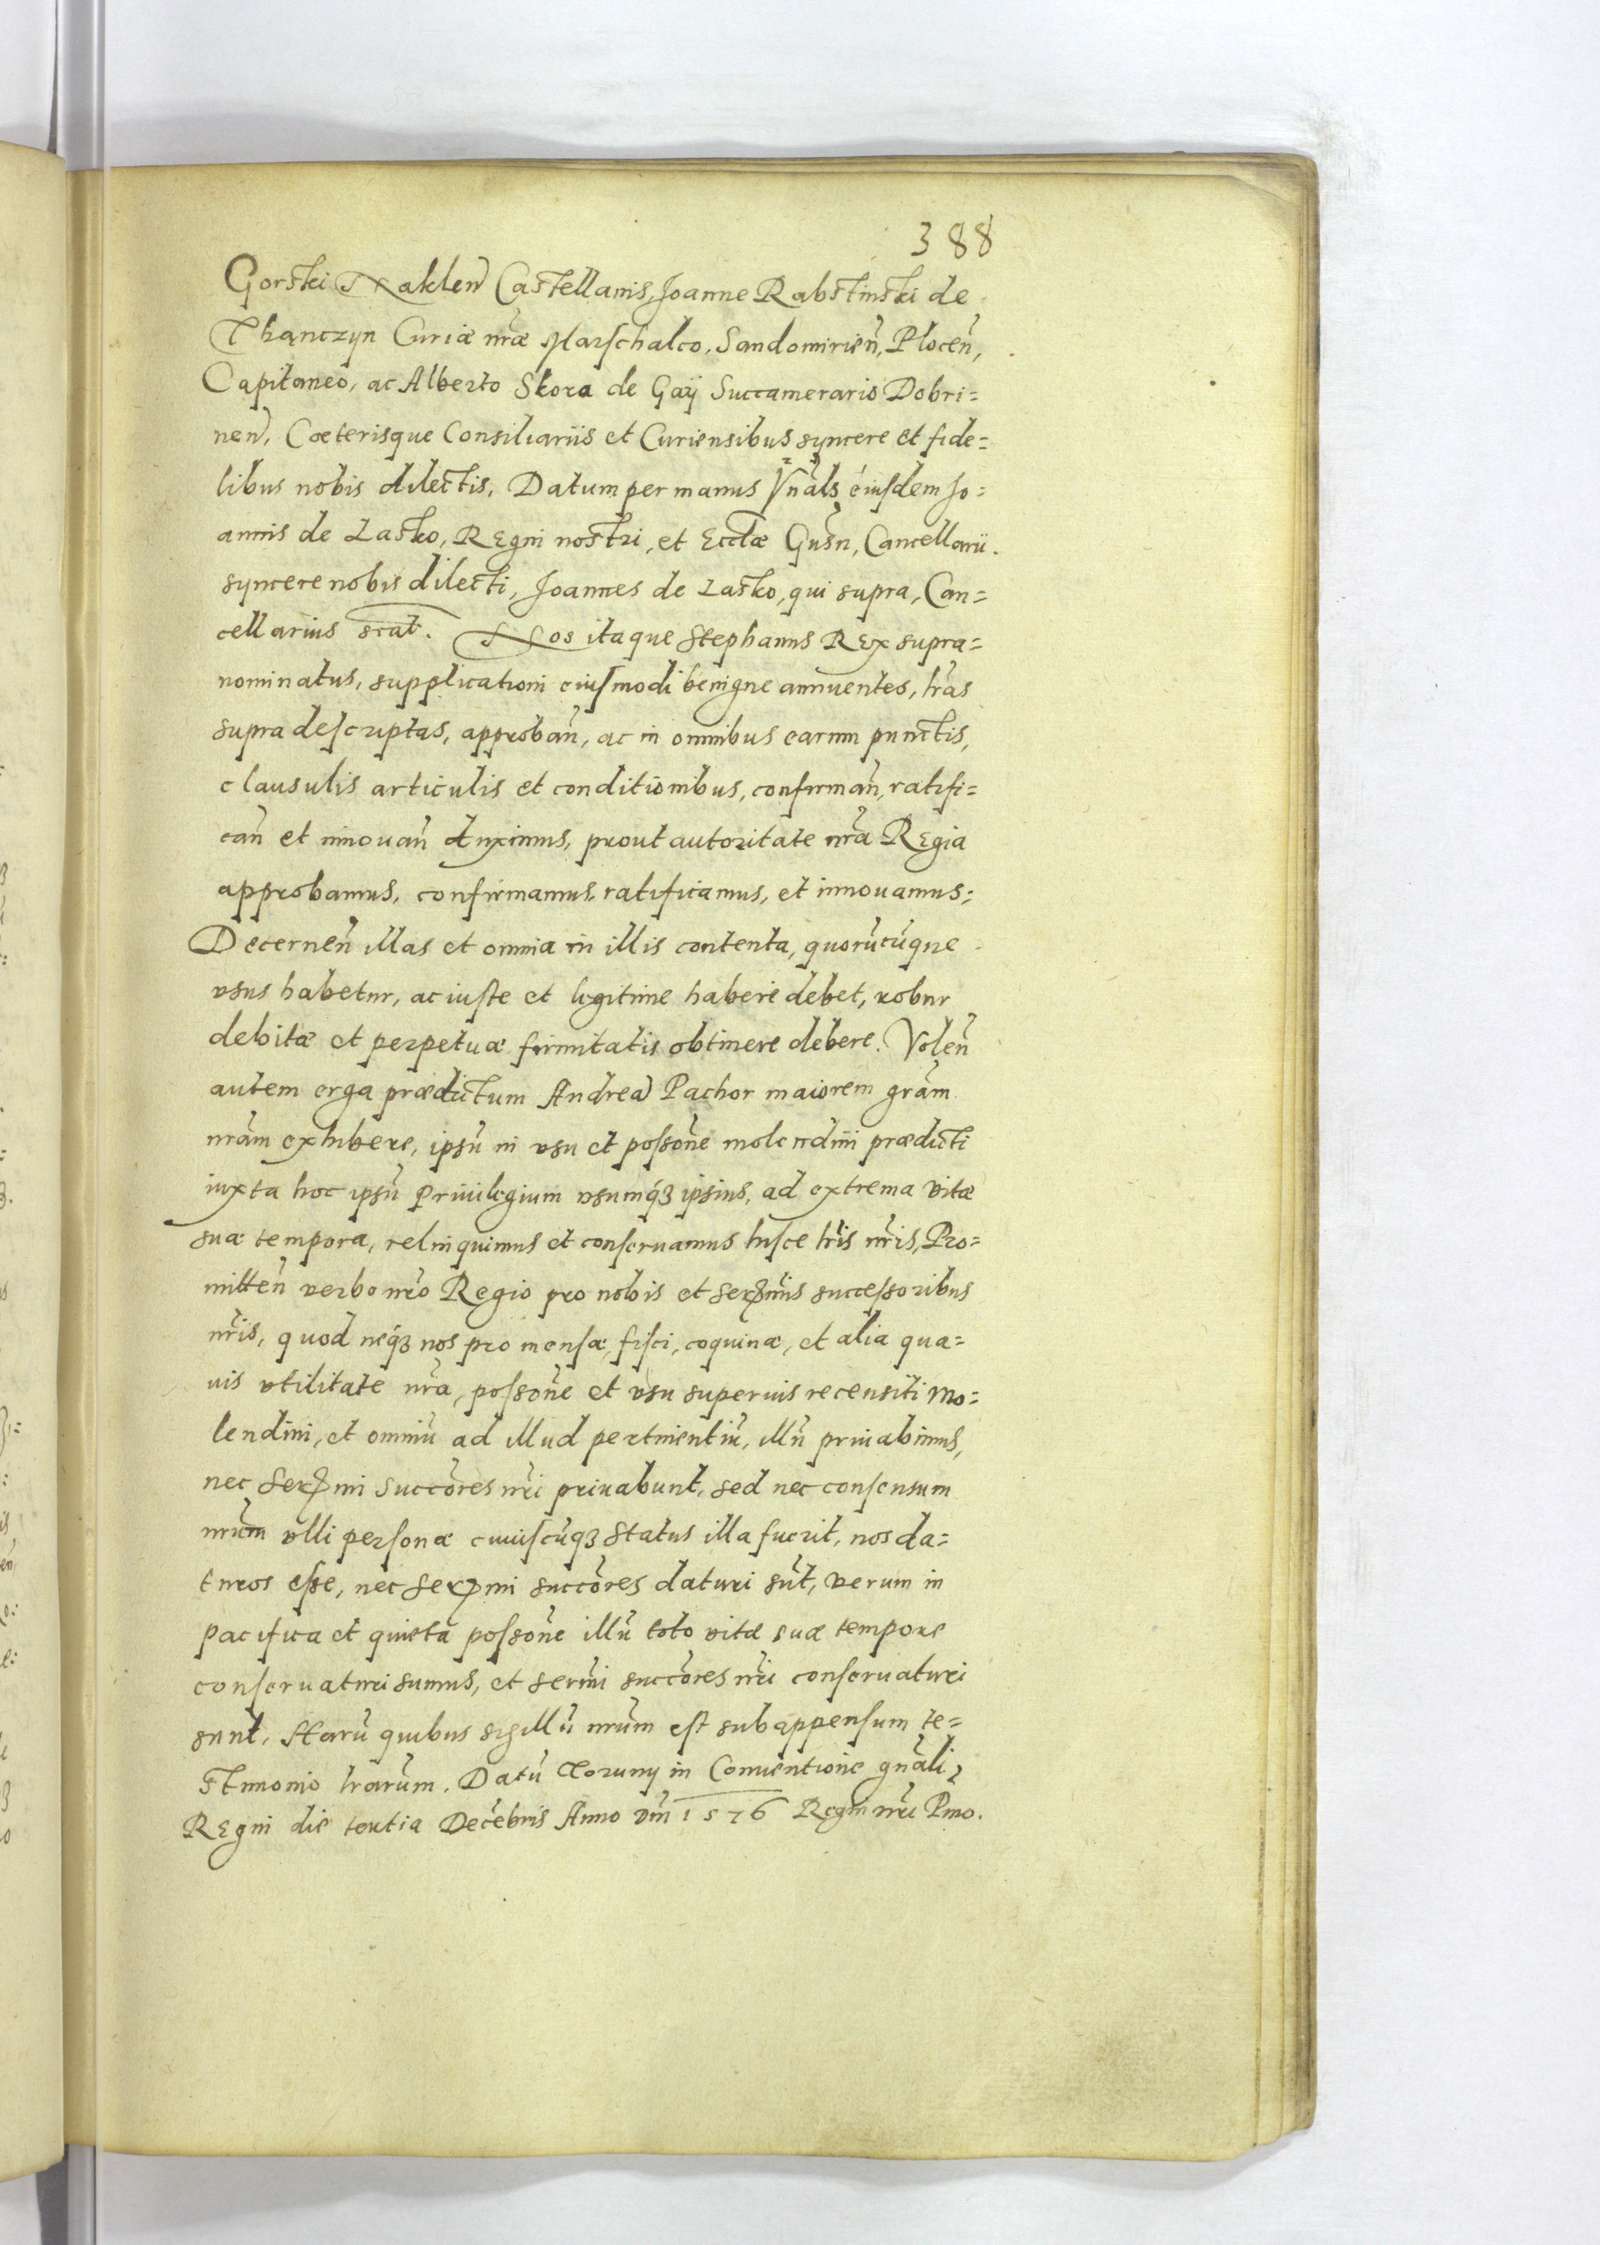 388
Gorski Naklen̄ Castellanis, Joanne Rabstinski de
Thanczyn Curiæ nr̃æ Marschalco, Sandomirien̄, Plocen̄,
Capitaneo, ac Alberto Skora de Gaÿ Succamerario Dobri=
nen̄, Cœterisque Consiliariis et Curiensibus syncere et fide=
libus nobis dilectis, Datum per manus Vn̄abls eiusdem Jo=
annis de Lasko, Regni nostri, et Eccl̄æ Gnesn̄, Cancellarii.
syncere nobis dilecti, Joannes de Lasko, qui supra, Can=
cellarius sc̄at. Nos itaque Stephanus Rex supra=
nominatus, supplicationi eiusmodi benigne annuentes, lr̃as
supra descriptas, approban̄, ac in omnibus earum punctis,
clausulis articulis et conditionibus, confirman̄, ratifi=
can̄ et innouan̄ duximus, prout autoritate nr̃a Regia
approbamus, confirmamus, ratificamus, et innouamus;
Decernen̄ illas et omnia in illis contenta, quorūcūque
vsus habetur, ac iuste et legitime habere debet, robur
debitæ et perpetuæ firmitatis obtinere debere. Volen̄
autem erga prædictum Andreā Pachor maiorem gr̃am
nr̃am exhibere, ipsū in vsu et possone molendini prædicti
iuxta hoc ipsū Priuilegium vsumq́ʒ ipsius, ad extrema vitæ
suæ tempora, relinquimus et conseruamus hisce lr̃is nr̃is, Pro=
mitten̄ verbo nr̃o Regio pro nobis et Serz̄mis successoribus
nr̃is, quod neq́ʒ nos pro mensæ, fisci, coquinæ, et alia qua=
uis vtilitate nr̃a, possone et vsu superius recensiti mo=
lendini, et omniū ad illud pertinentiū, illū priuabimus,
nec Serz̄mi succ̄ores nr̃i priuabunt, sed nec consensum
nr̃um vlli personæ cuiuscūqʒ status illa fuerit, nos da=
turos esse, nec Serz̄mi succ̄ores daturi sūt, verum in
pacifica et quieta possone illū toto vitæ suæ tempore
conseruaturi sumus, et ser̄mi succ̄ores nr̃i conseruaturi
sunt, Harū quibus sigillū nr̃um est subappensum te=
stimonio lr̃arum. Datū Toruny in Conuentione gn̄ali
Regni die tertia Decēbris Anno Dn̄i 1576 Regni nr̃i Pmo.